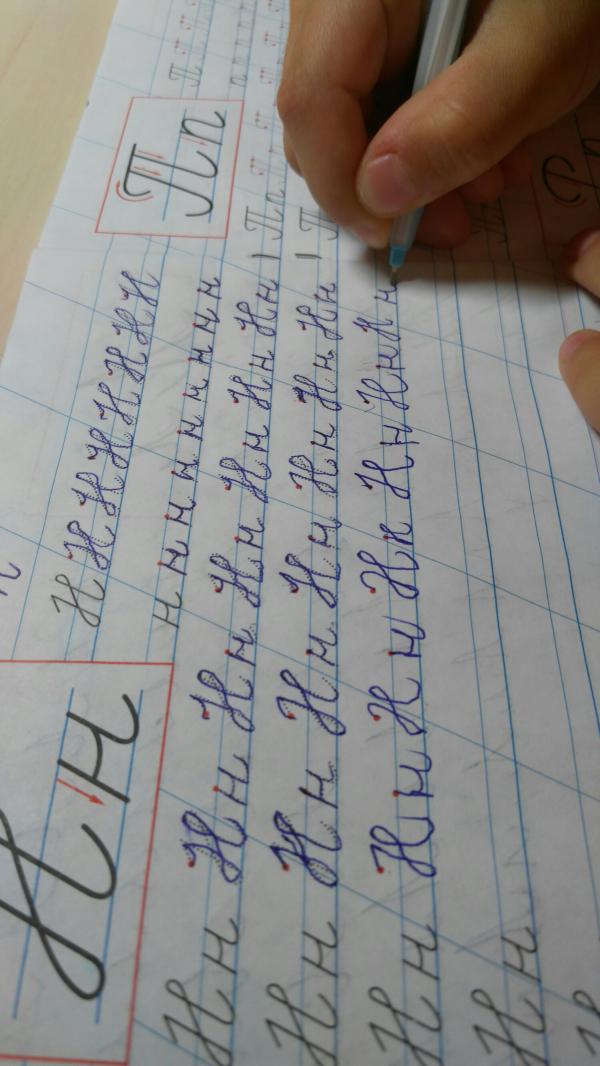 Н н
Н Н Н Н Н Н Н
н н н н н н н н н
Н н Н н Н н Н н Н н Н н Н н
Н н Н н Н н Н н Н н Н н Н н
Н н Н н Н н Н н Н н Н н Н н
Н н
П п
П п
П